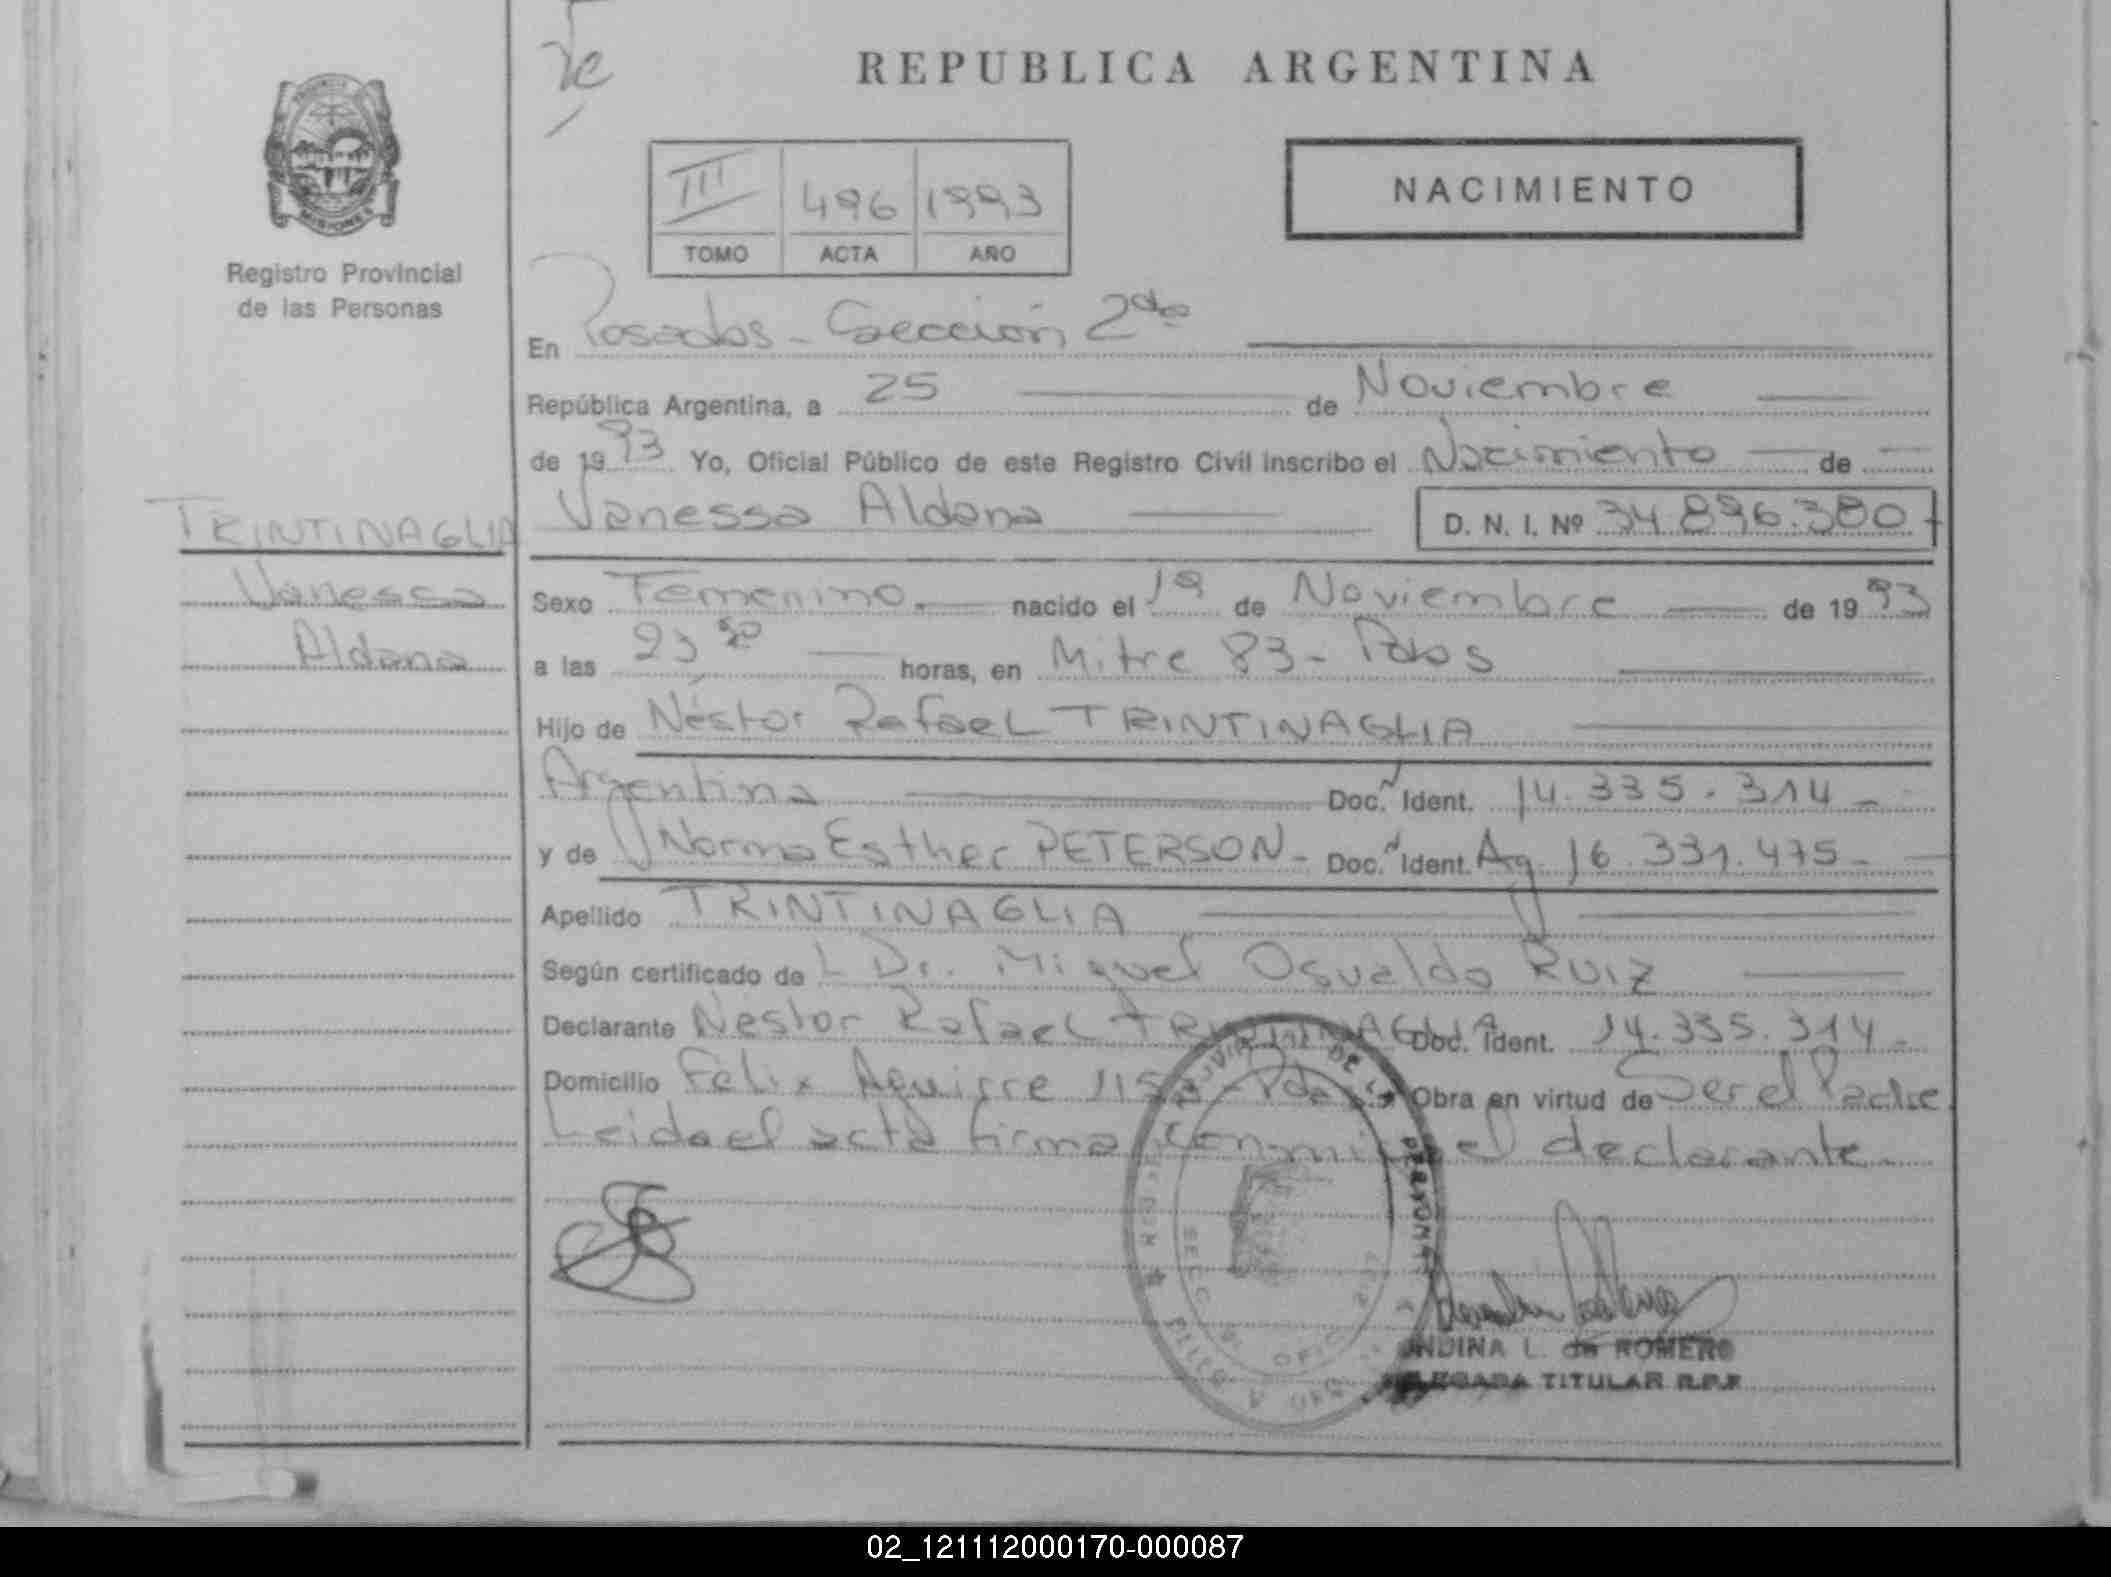 REPUBLICA ARGENTINA
NACIMIENTO
III 496 1993
TOMO ACTA AÑO
Registro Provincial
de las Personas
En Posadas - Sección 2da
República Argentina, a 25 de Noviembre
de 1993 Yo, Oficial Público de este Registro Civil inscribo el Nacimiento de
Vanessa Aldana D. N. I. Nº 34.896.380
TRINTINAGLIA
Vanessa
Aldana
Sexo Femenino. nacido el 19 de Noviembre de 1993
a las 23 horas, en Mitre 83 - Pdas
Hijo de Néstor Rafael TRINTINAGLIA
Argentina Doc. Ident. 14.335.314 -
y de Norma Esther PETERSON - Doc. Ident. Ag. 16.331.475 -
Apellido TRINTINAGLIA
Según certificado de L Dr. Miguel Osvaldo RUIZ
Declarante Nestor Rafael TRINTINAGLIA Doc. Ident. 14.335.314 -
Domicilio Félix Aguirre Obra en virtud de Ser el Padre
Leida el acta firma conmigo el declarante -
L. de ROMERO
TITULAR R.P.P.
02_121112000170-000087